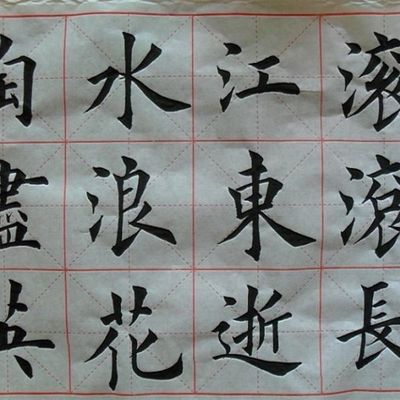 滚滚長
江東逝
水浪花
淘盡英